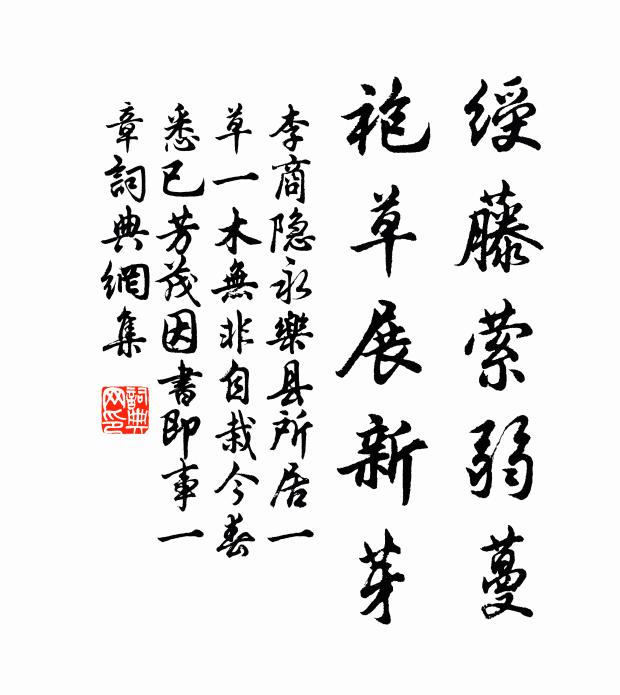 绶藤萦弱蔓
袍草展新芽
李商隐永樂县所居一
草一木無非自栽今春
悉已芳茂因書即事一
章詞典網集
詞典
网印